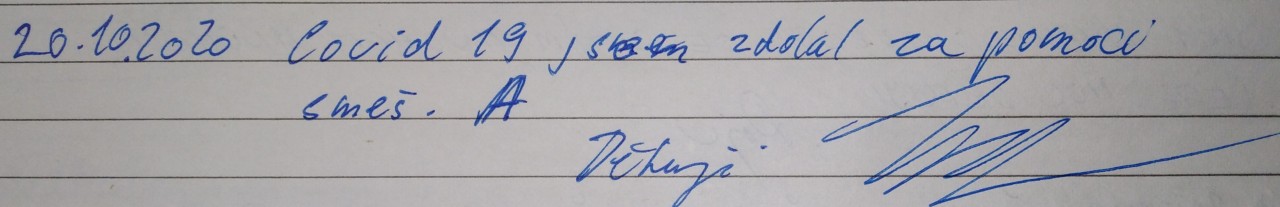 20.10.2020 Covid 19 jsem zdolal za pomoci
směs. A
Děkuji